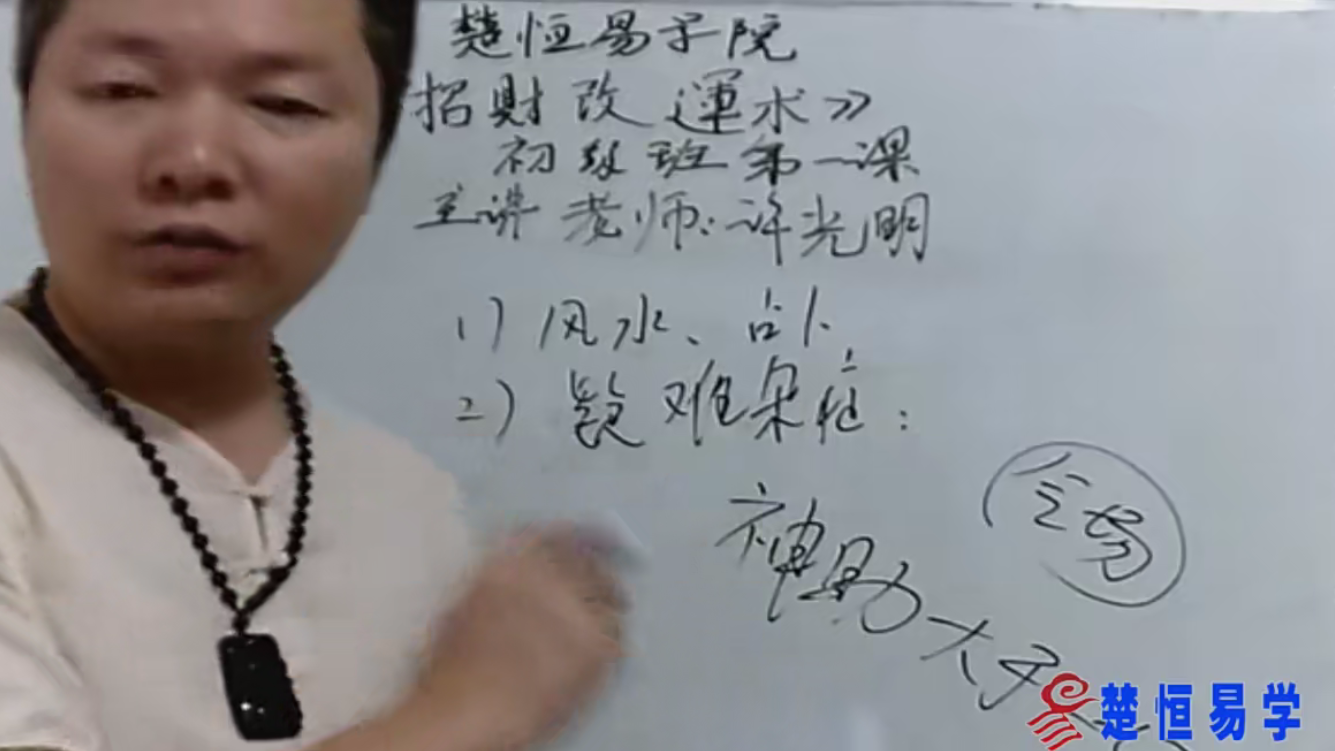 楚恒易学院
招財改運术》
初级班第一课
主讲老师:许光明
1) 风水、占卜
2) 疑难杂症:
气场
神助大于
楚恒易学